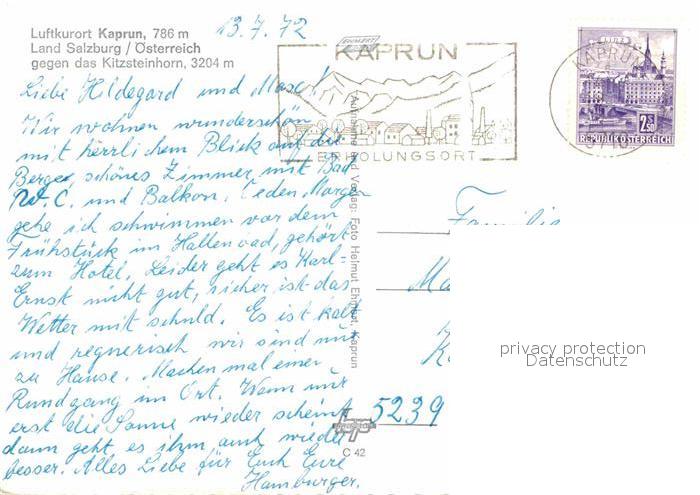 Luftkurort Kaprun, 786 m
Land Salzburg / Österreich
gegen das Kitzsteinhorn, 3204 m
13.7.72
Liebe Hildegard und
Wir wohnen wunderschön
mit herrlichem Blick auf die
Berge, schönes Zimmer mit Bad
W.C. und Balkon. Jeden Morgen
gehe ich schwimmen vor dem
Frühstück im Hallenbad, gehört
zum Hotel. Leider geht es Karl-
Ernst nicht gut, sicher ist das
Wetter mit schuld. Es ist kalt
und regnerisch wir sind nur
zu Hause. Machen mal einen
Rundgang im Ort. Wenn mir
erst die Sonne wieder scheint
dann geht es ihm auch wieder
besser. Alles Liebe für Euch Eure
Hamburger.
KAPRUN
ERHOLUNGSORT
KAPRUN
LINZ
2.50
REPUBLIK ÖSTERREICH
Aufnahme und Verlag: Foto Helmut Ehgart, Kaprun
Familie
5239
C 42
privacy protection
Datenschutz